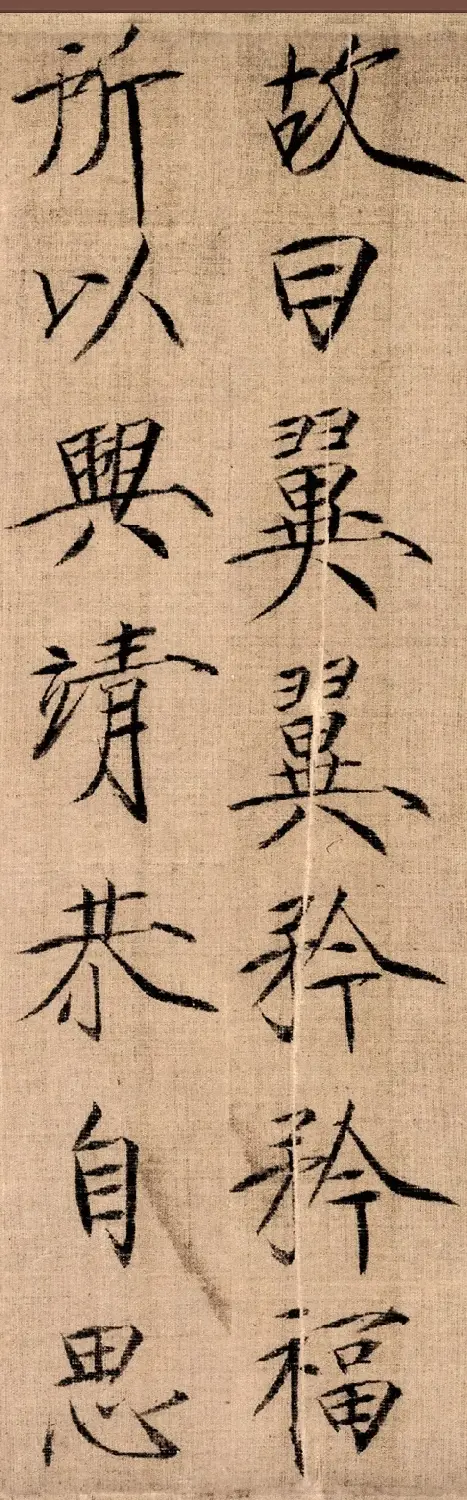 故曰翼翼矜矜福
所以興靖恭自思